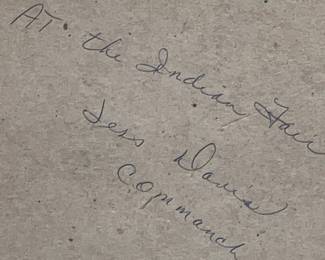 AT. the Indian Fair
Jess Davis
Commanch